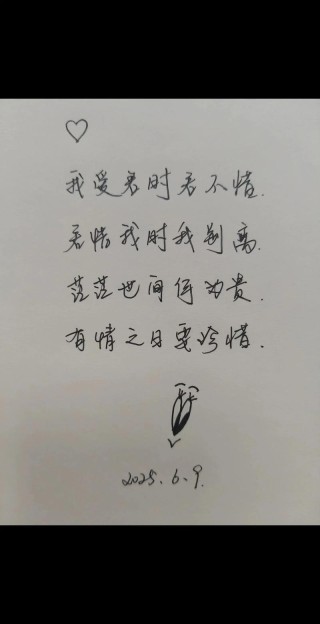 我爱君时君不惜.
君惜我时我别离.
茫茫世间何为贵.
有情之日要珍惜.
2025.6.9.